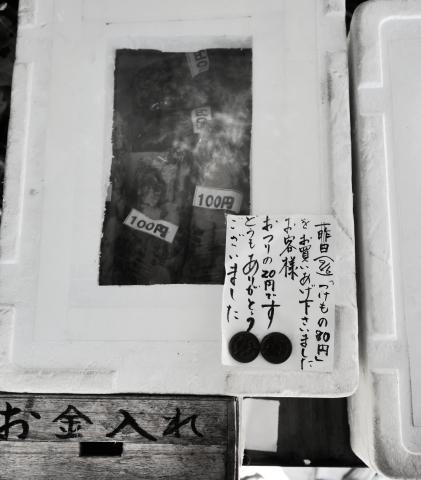 100円
100円
昨日(2/2)「つけもの80円」
をお買いあげ下さいました
お客様
おつりの20円です
どうもありがとう
ございました
お金入れ